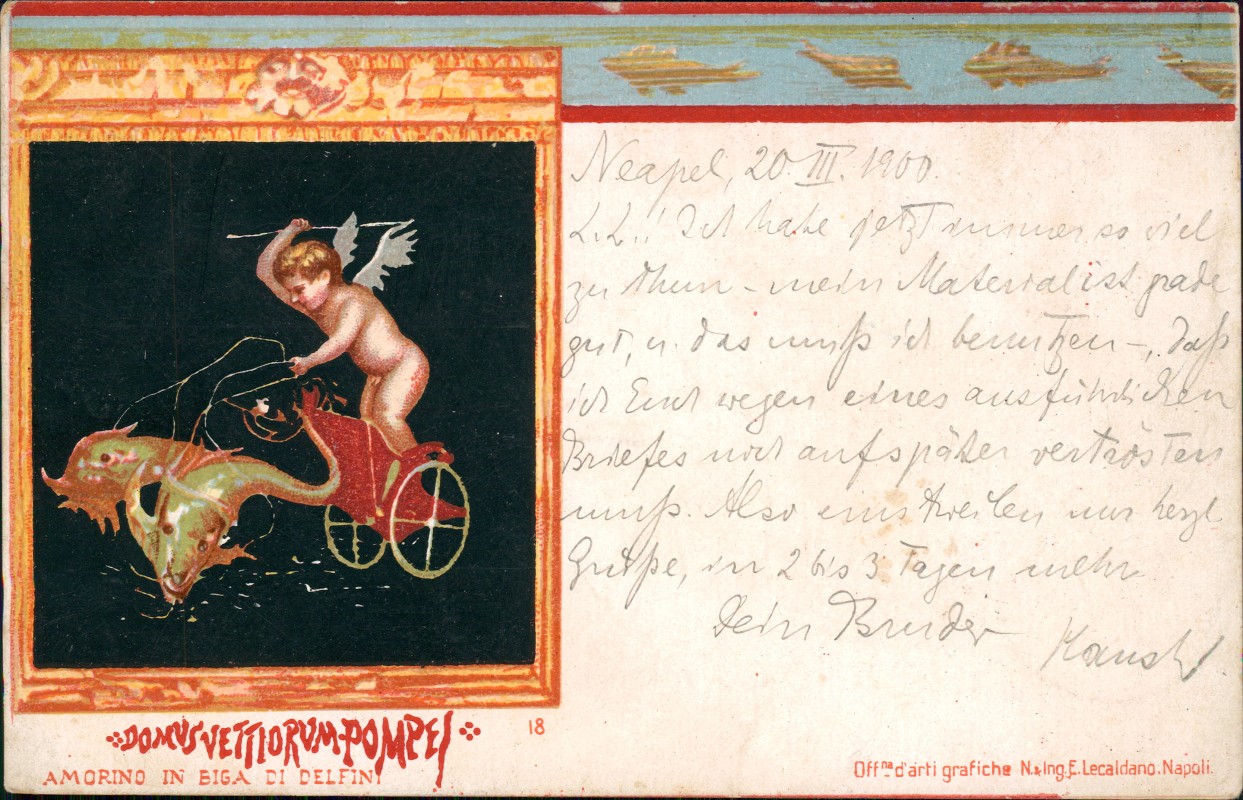 Neapel, 20. III. 1900.
L. L.! Ich habe jetzt immer so viel
zu thun – mein Material ist grade
gut, u. das muß ich benutzen –, daß
ich Euch wegen eines ausführlichen
Briefes noch auf später vertrösten
muß. Also einstweilen nur herzl.
Grüße, in 2 bis 3 Tagen mehr
Dein Bruder
DOMVS VETTIORVM-POMPEI
18
AMORINO IN BIGA DI DELFINI
Off.na d'arti grafiche N.& Ing. E. Lecaldano. Napoli.